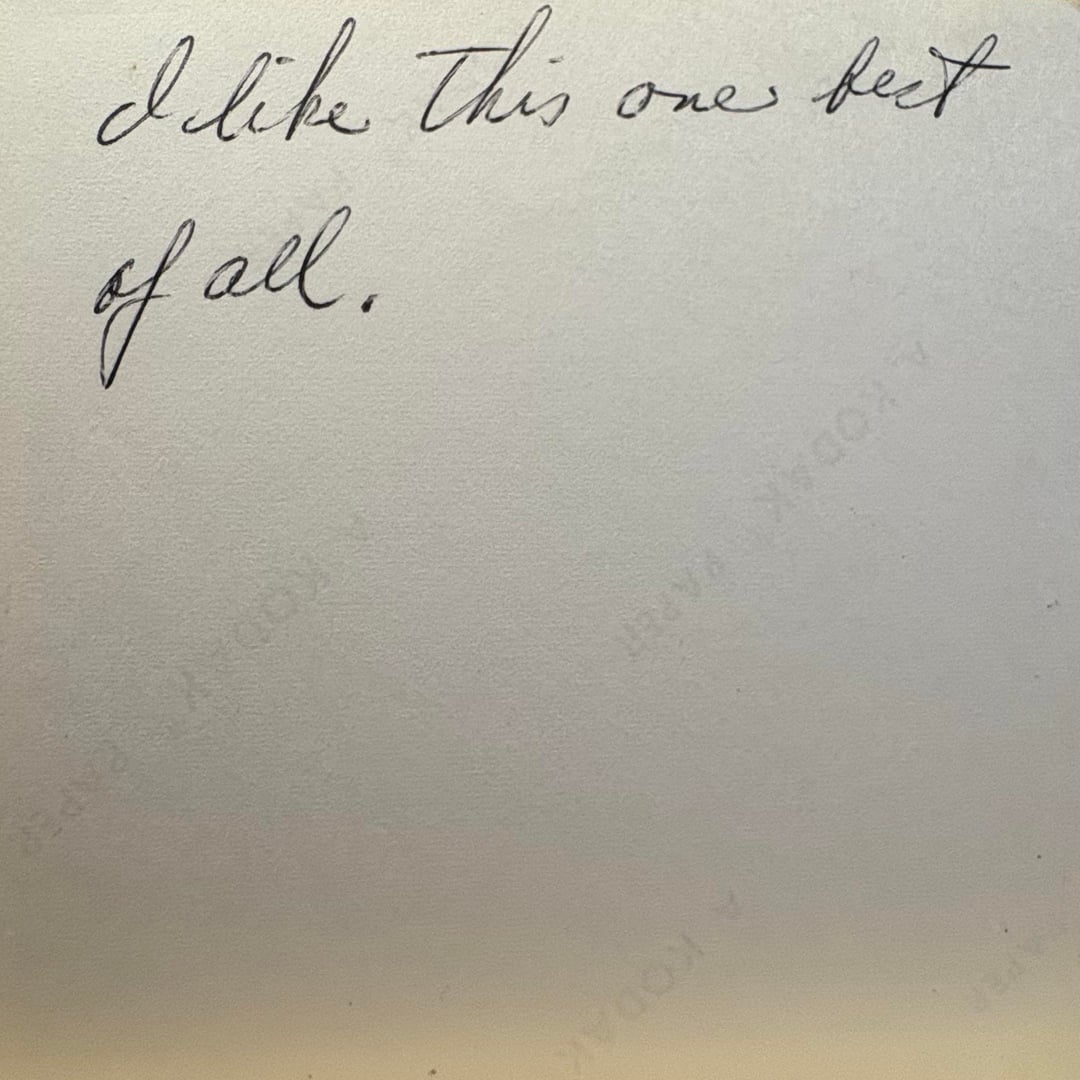 I like this one best
of all.
KODAK
PAPER
KODAK
PAPER
KODAK